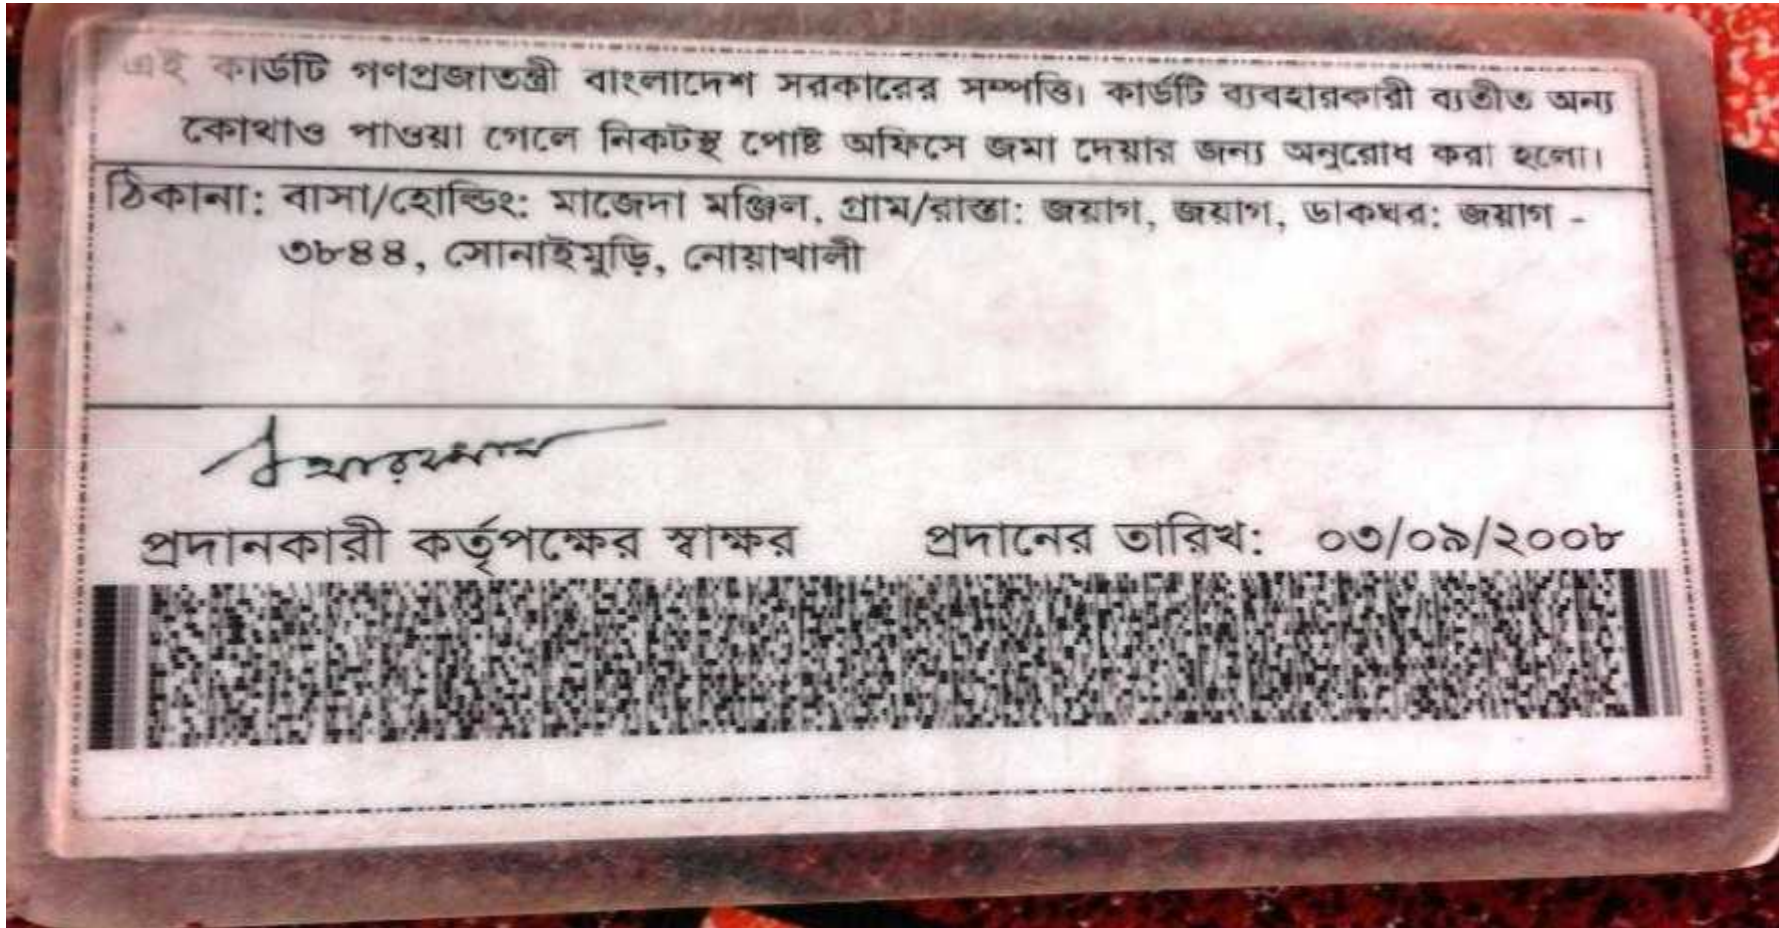 এই কার্ডটি গণপ্রজাতন্ত্রী বাংলাদেশ সরকারের সম্পত্তি। কার্ডটি ব্যবহারকারী ব্যতীত অন্য
কোথাও পাওয়া গেলে নিকটস্থ পোষ্ট অফিসে জমা দেয়ার জন্য অনুরোধ করা হলো।
ঠিকানা: বাসা/হোল্ডিং: মাজেদা মঞ্জিল, গ্রাম/রাস্তা: জয়াগ, জয়াগ, ডাকঘর: জয়াগ -
৩৮৪৪, সোনাইমুড়ি, নোয়াখালী
প্রদানকারী কর্তৃপক্ষের স্বাক্ষর প্রদানের তারিখ: ০৩/০৯/২০০৮